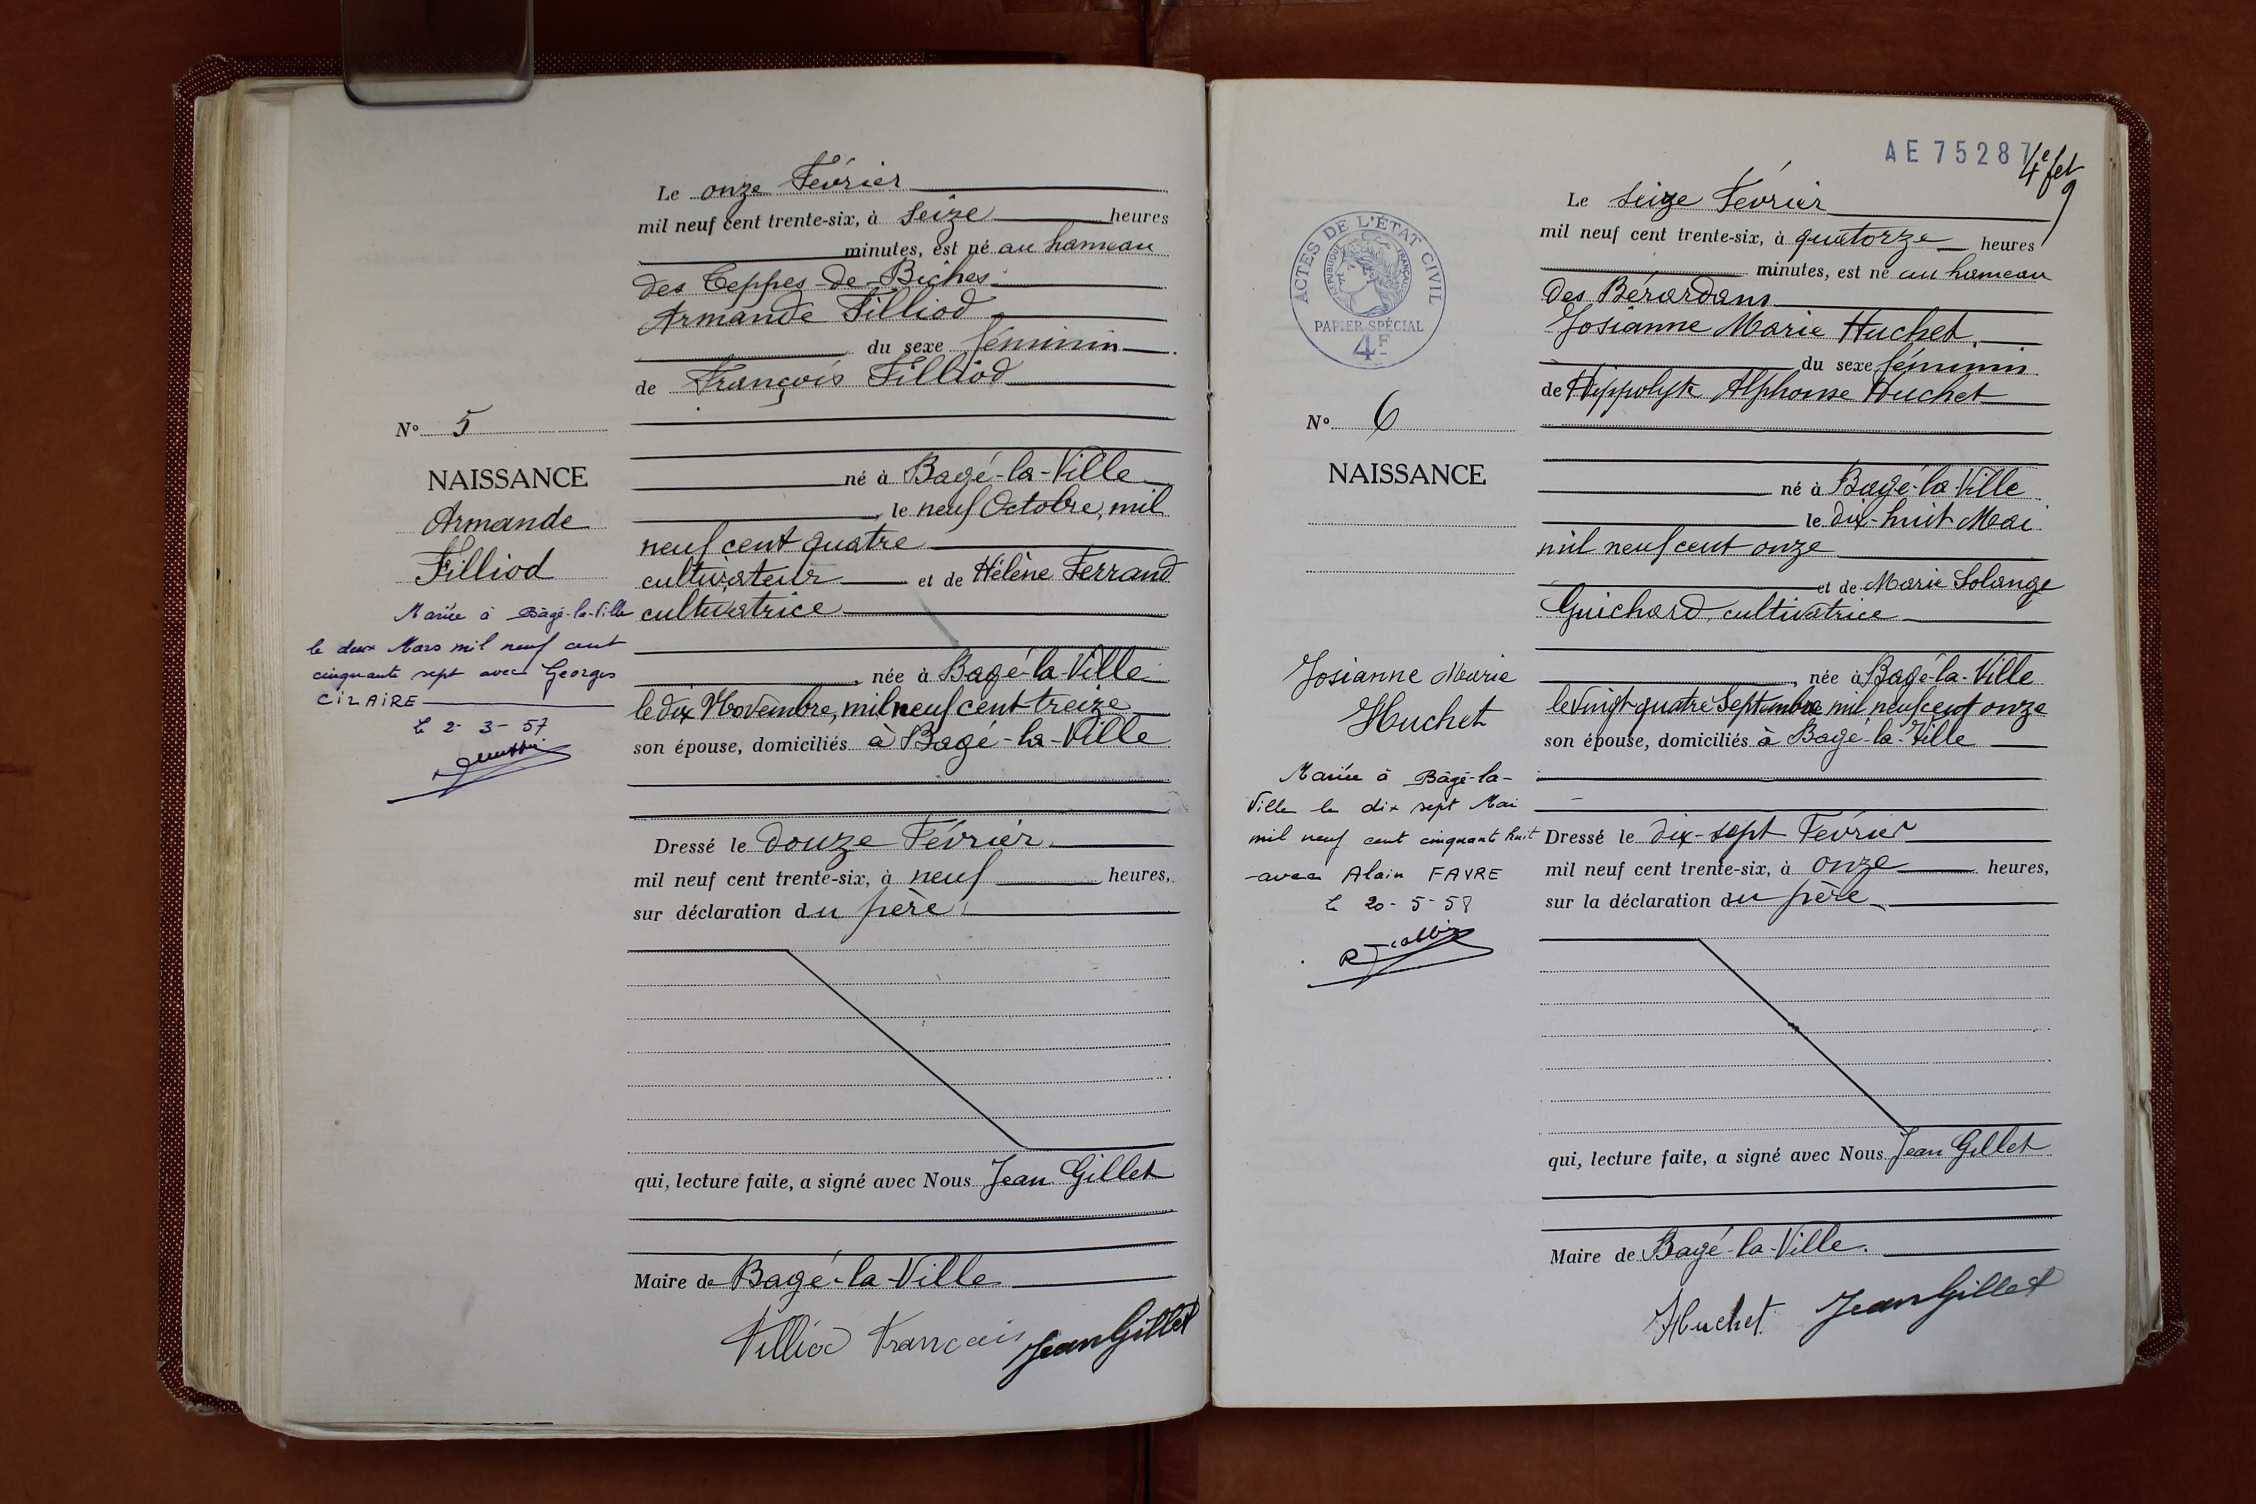 Le onze Février
mil neuf cent trente-six, à seize heures
minutes, est né au hameau
des Teppes de Biches
Armande Filliod
du sexe féminin
de François Filliod
N° 5
NAISSANCE
Armande
Filliod
né à Bagé-la-Ville
, le neuf Octobre, mil
neuf cent quatre
cultivateur et de Hélène Ferrand
cultivatrice
, née à Bagé-la-Ville
le dix Novembre, mil neuf cent treize
son épouse, domiciliés à Bagé-la-Ville
Mariée à Bâgé-la-Ville
le deux Mars mil neuf cent
cinquante sept avec Georges
CILAIRE
le 2-3-57
Dressé le douze Février
mil neuf cent trente-six, à neuf heures,
sur déclaration du père
qui, lecture faite, a signé avec Nous Jean Gillet
Maire de Bagé-la-Ville
Filliod Francois JeanGillet
AE 75287
4e fet
9
ACTES DE L'ÉTAT CIVIL
RÉPUBLIQUE FRANÇAISE
PAPIER SPÉCIAL
4F
Le seize Février
mil neuf cent trente-six, à quatorze heures
minutes, est né au hameau
des Bérardans
Josianne Marie Huchet,
du sexe féminin
de Hippolyte Alphonse Huchet
N° 6
NAISSANCE
Josianne Marie
Huchet
né à Bagé-la-Ville
le dix-huit Mai
mil neuf cent onze
et de Marie Solange
Guichard, cultivatrice
, née à Bagé-la-Ville
le vingt-quatre Septembre mil neuf cent onze
son épouse, domiciliés à Bagé-la-Ville
Mariée à Bâgé-la-
Ville le dix sept Mai
mil neuf cent cinquante huit
avec Alain FAVRE
le 20-5-58
Dressé le dix-sept Février
mil neuf cent trente-six, à onze heures,
sur la déclaration du père
qui, lecture faite, a signé avec Nous Jean Gillet
Maire de Bagé-la-Ville.
Huchet JeanGillet